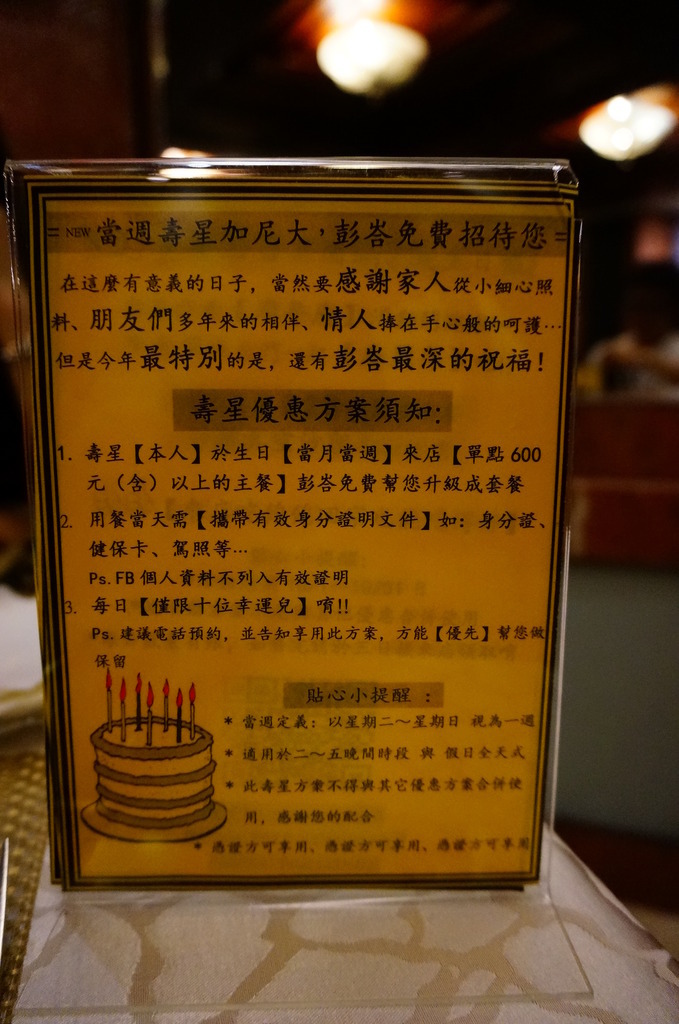 = NEW 當週壽星加尼大，彭峇免費招待您 =
在這麼有意義的日子，當然要感謝家人從小細心照
料、朋友們多年來的相伴、情人捧在手心般的呵護…
但是今年最特別的是，還有彭峇最深的祝福！
壽星優惠方案須知：
1. 壽星【本人】於生日【當月當週】來店【單點 600
元（含）以上的主餐】彭峇免費幫您升級成套餐
2. 用餐當天需【攜帶有效身分證明文件】如：身分證、
健保卡、駕照等…
Ps. FB 個人資料不列入有效證明
3. 每日【僅限十位幸運兒】唷!!
Ps. 建議電話預約，並告知享用此方案，方能【優先】幫您做
保留
貼心小提醒：
* 當週定義：以星期二～星期日 視為一週
* 適用於二～五晚間時段 與 假日全天式
* 此壽星方案不得與其它優惠方案合併使
用，感謝您的配合
* 憑證方可享用、憑證方可享用、憑證方可享用